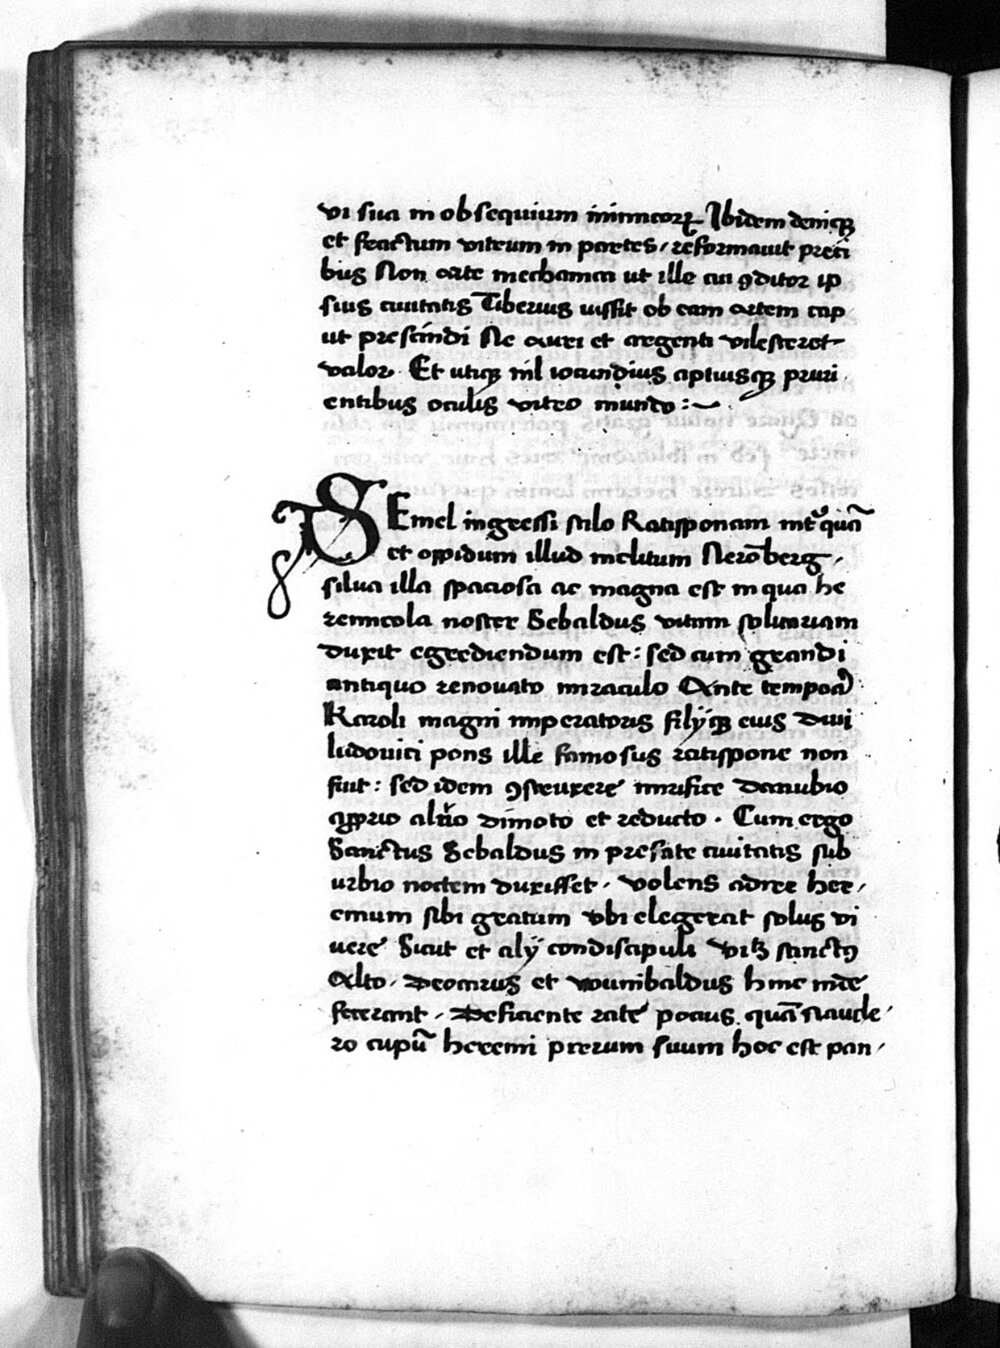 vi sua in obsequium inimicorꝝ Ibidem deniqꝫ
et fractum vitrum in partes / reformauit preci
bus Non arte mechanica ut ille cui ꝯditor ip
sius ciuitatis Tiberius iussit ob eam artem cap
ut prescindi Ne auri et argenti vilesceret
valor. Et utiqꝫ nil iocundius aptiusqꝫ pruri
entibus oculis vitro mundo :~
SEmel ingressi stilo Ratisponam int͛ quā
et oppidum illud inclitum Nerōberg /
silua illa spaciosa ac magna est in qua he
remicola noster Sebaldus vitam solitariam
duxit egrediendum est : sed cum grandi
antiquo renouato miraculo Ante tempora
Karoli magni imperatoris filijqꝫ eius diui
ludouici pons ille famosus ratispone non
fuit : sed idem ꝯstruxere mirifice danubio
ꝓprio alueo dimoto et reducto . Cum ergo
Sanctus Sebaldus in prefate ciuitatis sub
urbio noctem duxisset . volens adire her /
emum sibi gratum vbi elegerat solus vi
uere Sicut et alij condiscipuli vidꝫ sanctꝰ
Alto . Deocarus et wunibaldus hinc inde
fecerant . Deficiente rate pocius quā naucle /
ro cupiē heremi pterum suum hoc est pan /